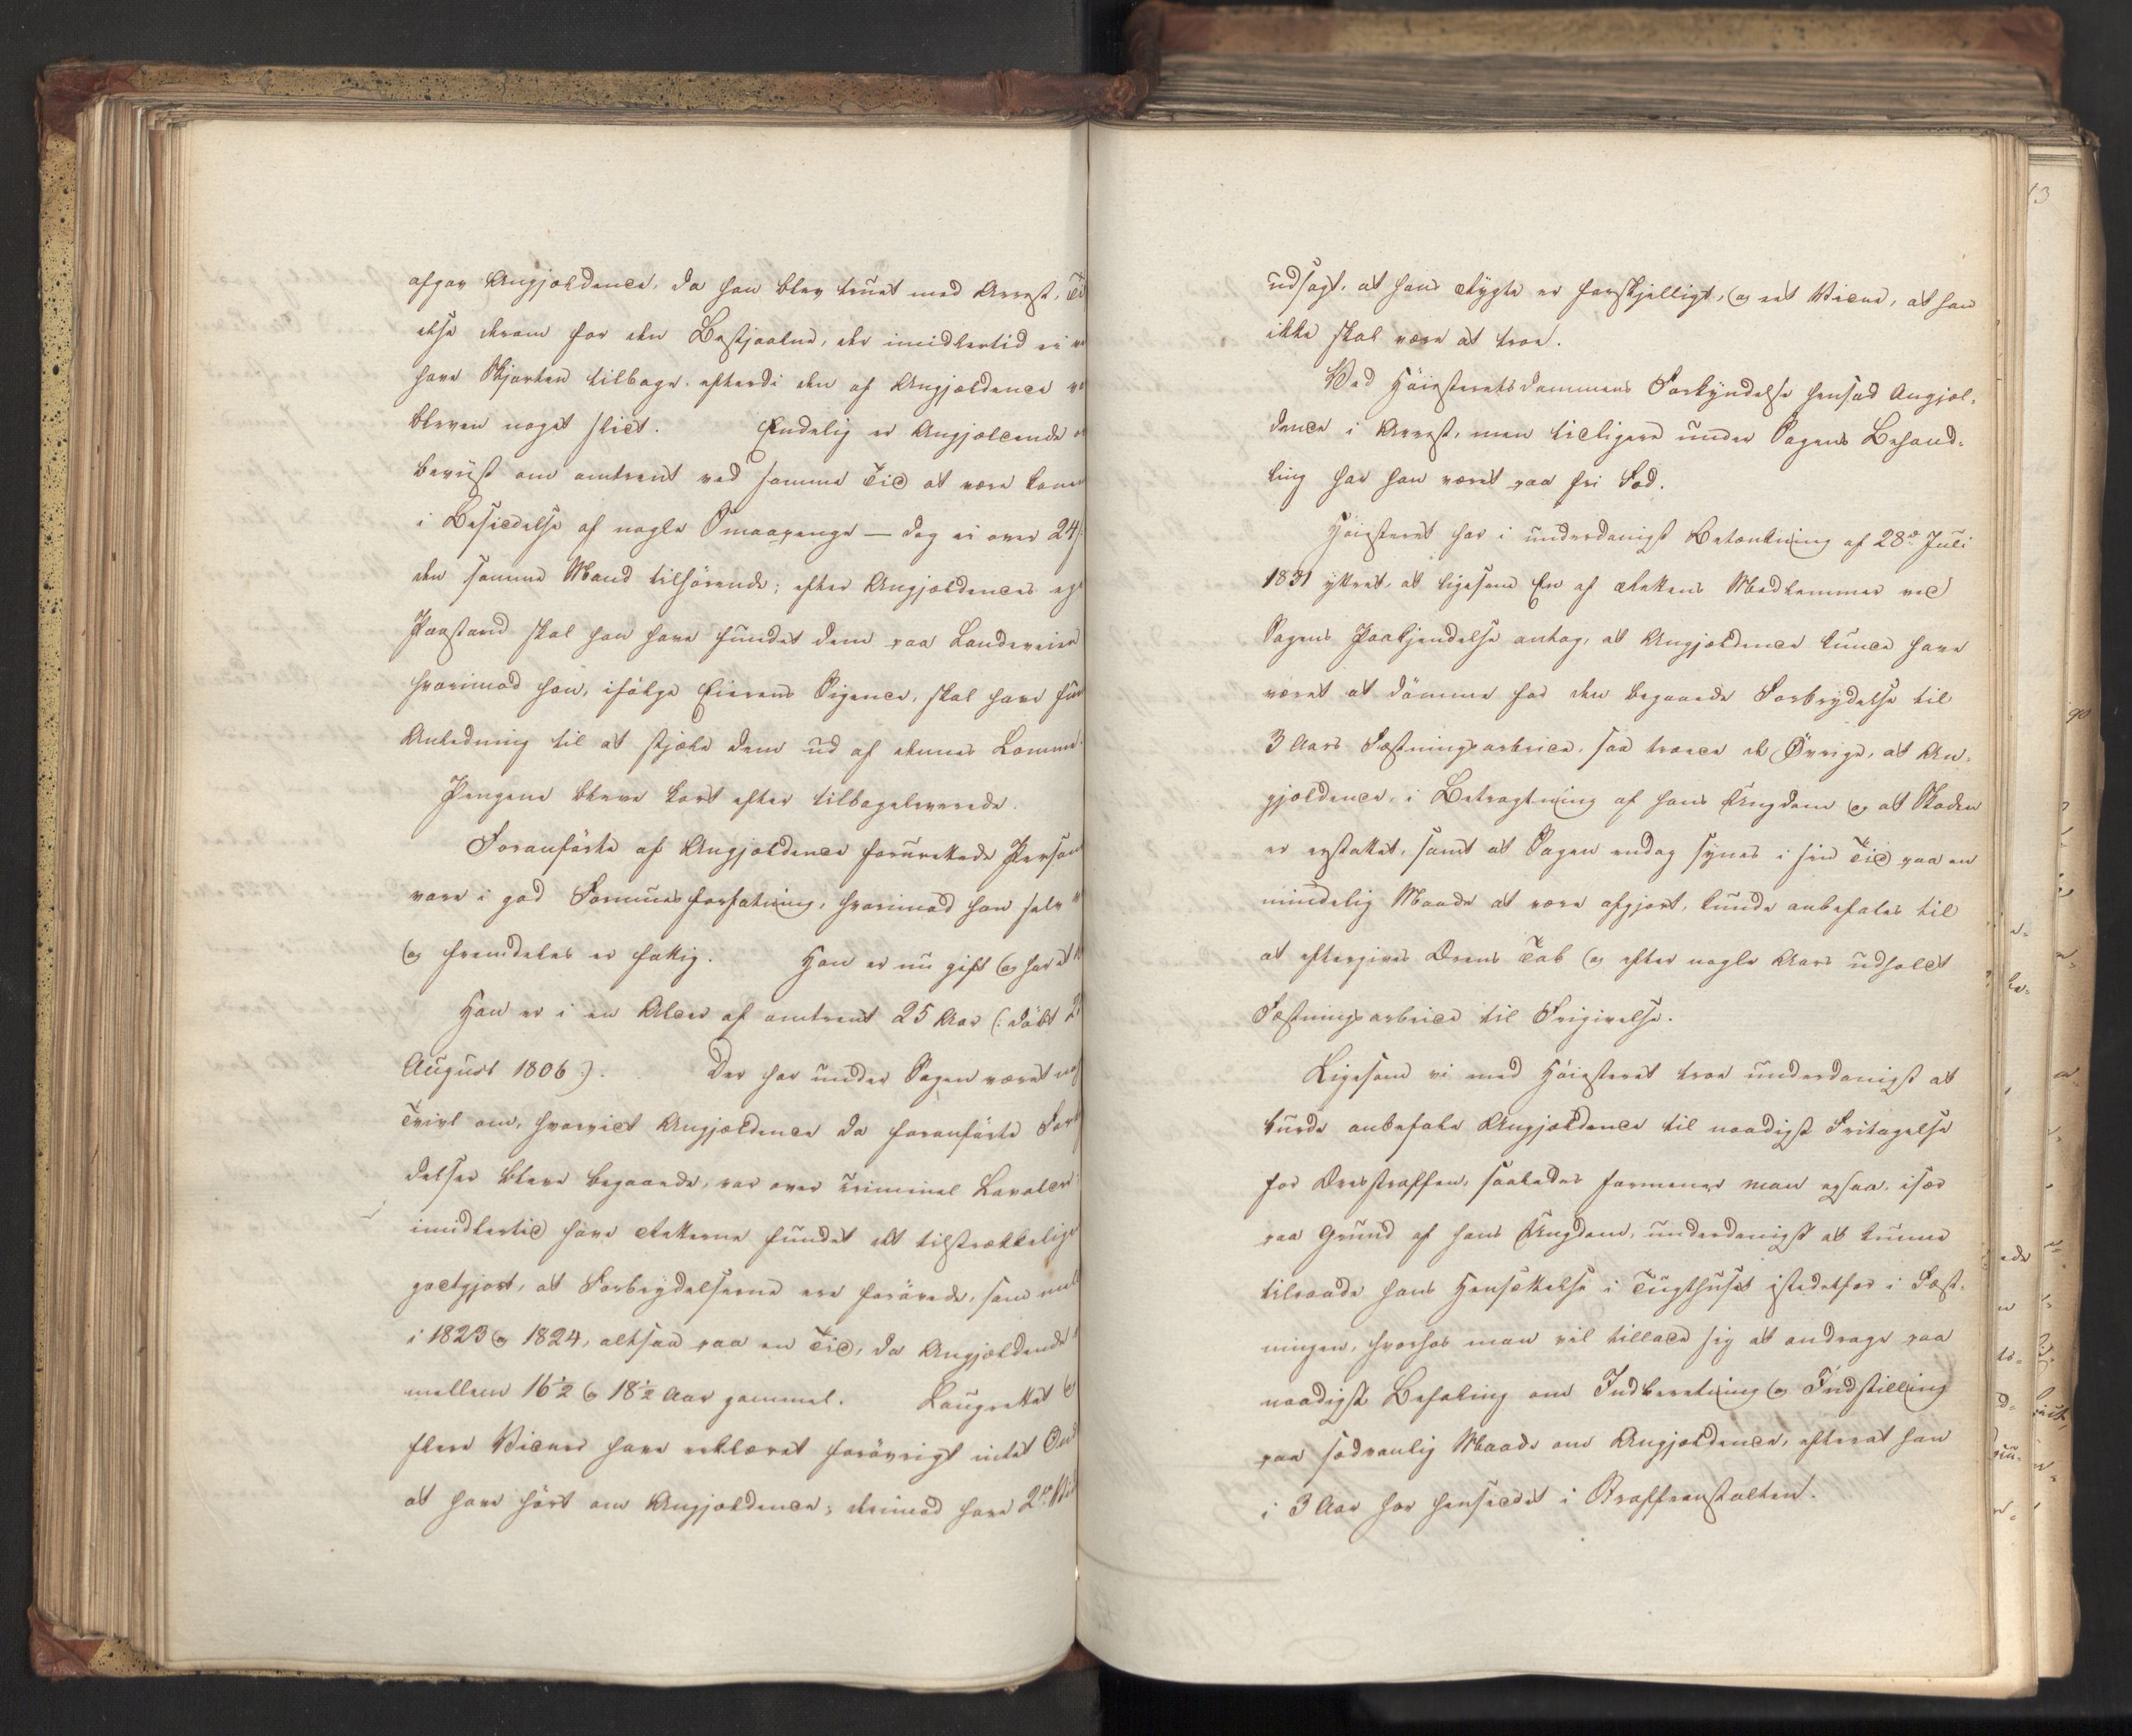 afgav Angjældende, da han blev truet med Arrest,
else derom for den Bestjaalne, der imidlertid ei
have Skjorten tilbage, efterdi den af Angjældende
bleven noget slidt. Endelig er Angjældende
beviist om omtrent ved samme Tid at være kommen
i Besiddelse af nogle Smaapenge — dog ei over 24 ß
den samme Mand tilhørende; efter Angjældendes eget
Paastand skal han have fundet dem paa Landeveien
hvorimod han, ifølge Eierens Sigende, skal have
Anledning til at stjæle dem ud af dennes Lomme.
Pengene bleve kort efter tilbageleverede.
Foranførte af Angjældende forurettede Personer
vare i god Formuesforfatning, hvorimod han selv
og fremdeles er fattig. Han er nu gift og har et
Han er i en Alder af omtrent 25 Aar (: døbt
August 1806 :). Der har under Sagen været
Tvivl om, hvorvidt Angjældende da foranførte
delser bleve begaaede, var over criminel Lavalder,
imidlertid have Retterne fundet det tilstrækkelig
godtgjort, at Forbrydelserne ere forøvede, som
i 1823 og 1824, altsaa paa en Tid, da Angjældende
mellem 16½ og 18½ Aar gammel. Laugrettet og
flere Vidner have erklæret forøvrigt intet Ondt
at have hørt om Angjældende; derimod have 2de
udsagt, at hans Rygte er forskjelligt, og eet Vidne, at han
ikke skal være at troe.
Ved Høiesteretsdommens Forkyndelse hensad Angjæl-
dende i Arrest, men tidligere under Sagens Behand-
ling har han været paa fri Fod.
Høiesteret har i underdanigst Betænkning af 28de Juli
1831 yttret, at ligesom En af Rettens Medlemmer ved
Sagens Paakjendelse antog, at Angjældende kunde have
været at dømme for den begaaede Forbrydelse til
3 Aars Fæstningsarbeide, saa troede de Øvrige, at An-
gjældende, i Betragtning af hans Ungdom og at Skaden
er erstattet, samt at Sagen endog synes i sin Tid paa en
mindelig Maade at være afgjort, kunde anbefales til
at eftergives Ærens Tab og efter nogle Aars udholdt
Fæstningsarbeide til Frigivelse.
Ligesom vi med Høiesteret troe underdanigst at
burde anbefale Angjældende til naadigst Fritagelse
for Æresstraffen, saaledes formener man ogsaa, især
paa Grund af hans Ungdom, underdanigst at kunne
tilraade hans Hensættelse i Tugthuset istedetfor i Fæst-
ningen, hvorhos man vil tillade sig at andrage paa
naadigst Befaling om Indberetning og Indstilling
paa sædvanlig Maade om Angjældende, efterat han
i 3 Aar har hensiddet i Straffeanstalten.